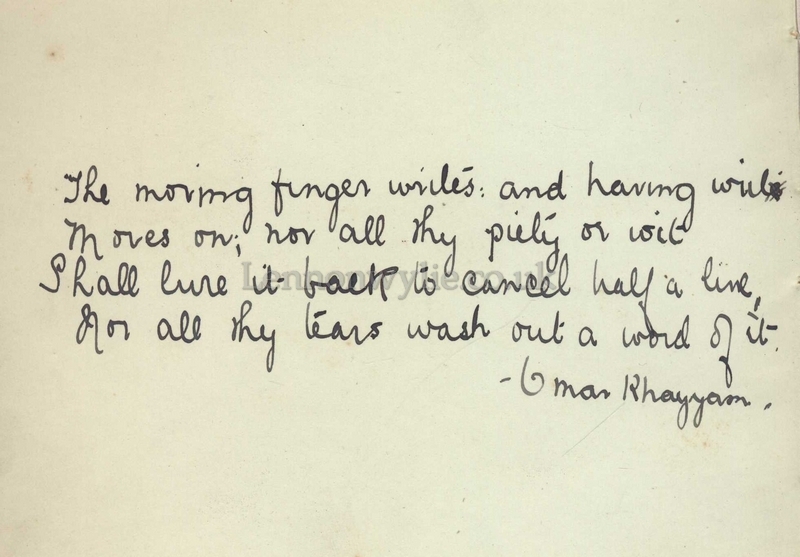 The moving finger writes: and having writ
Moves on; nor all thy piety or wit
Shall lure it back to cancel half a line,
Nor all thy tears wash out a word of it.
- Omar Khayyam.
LennonWylie.co.uk